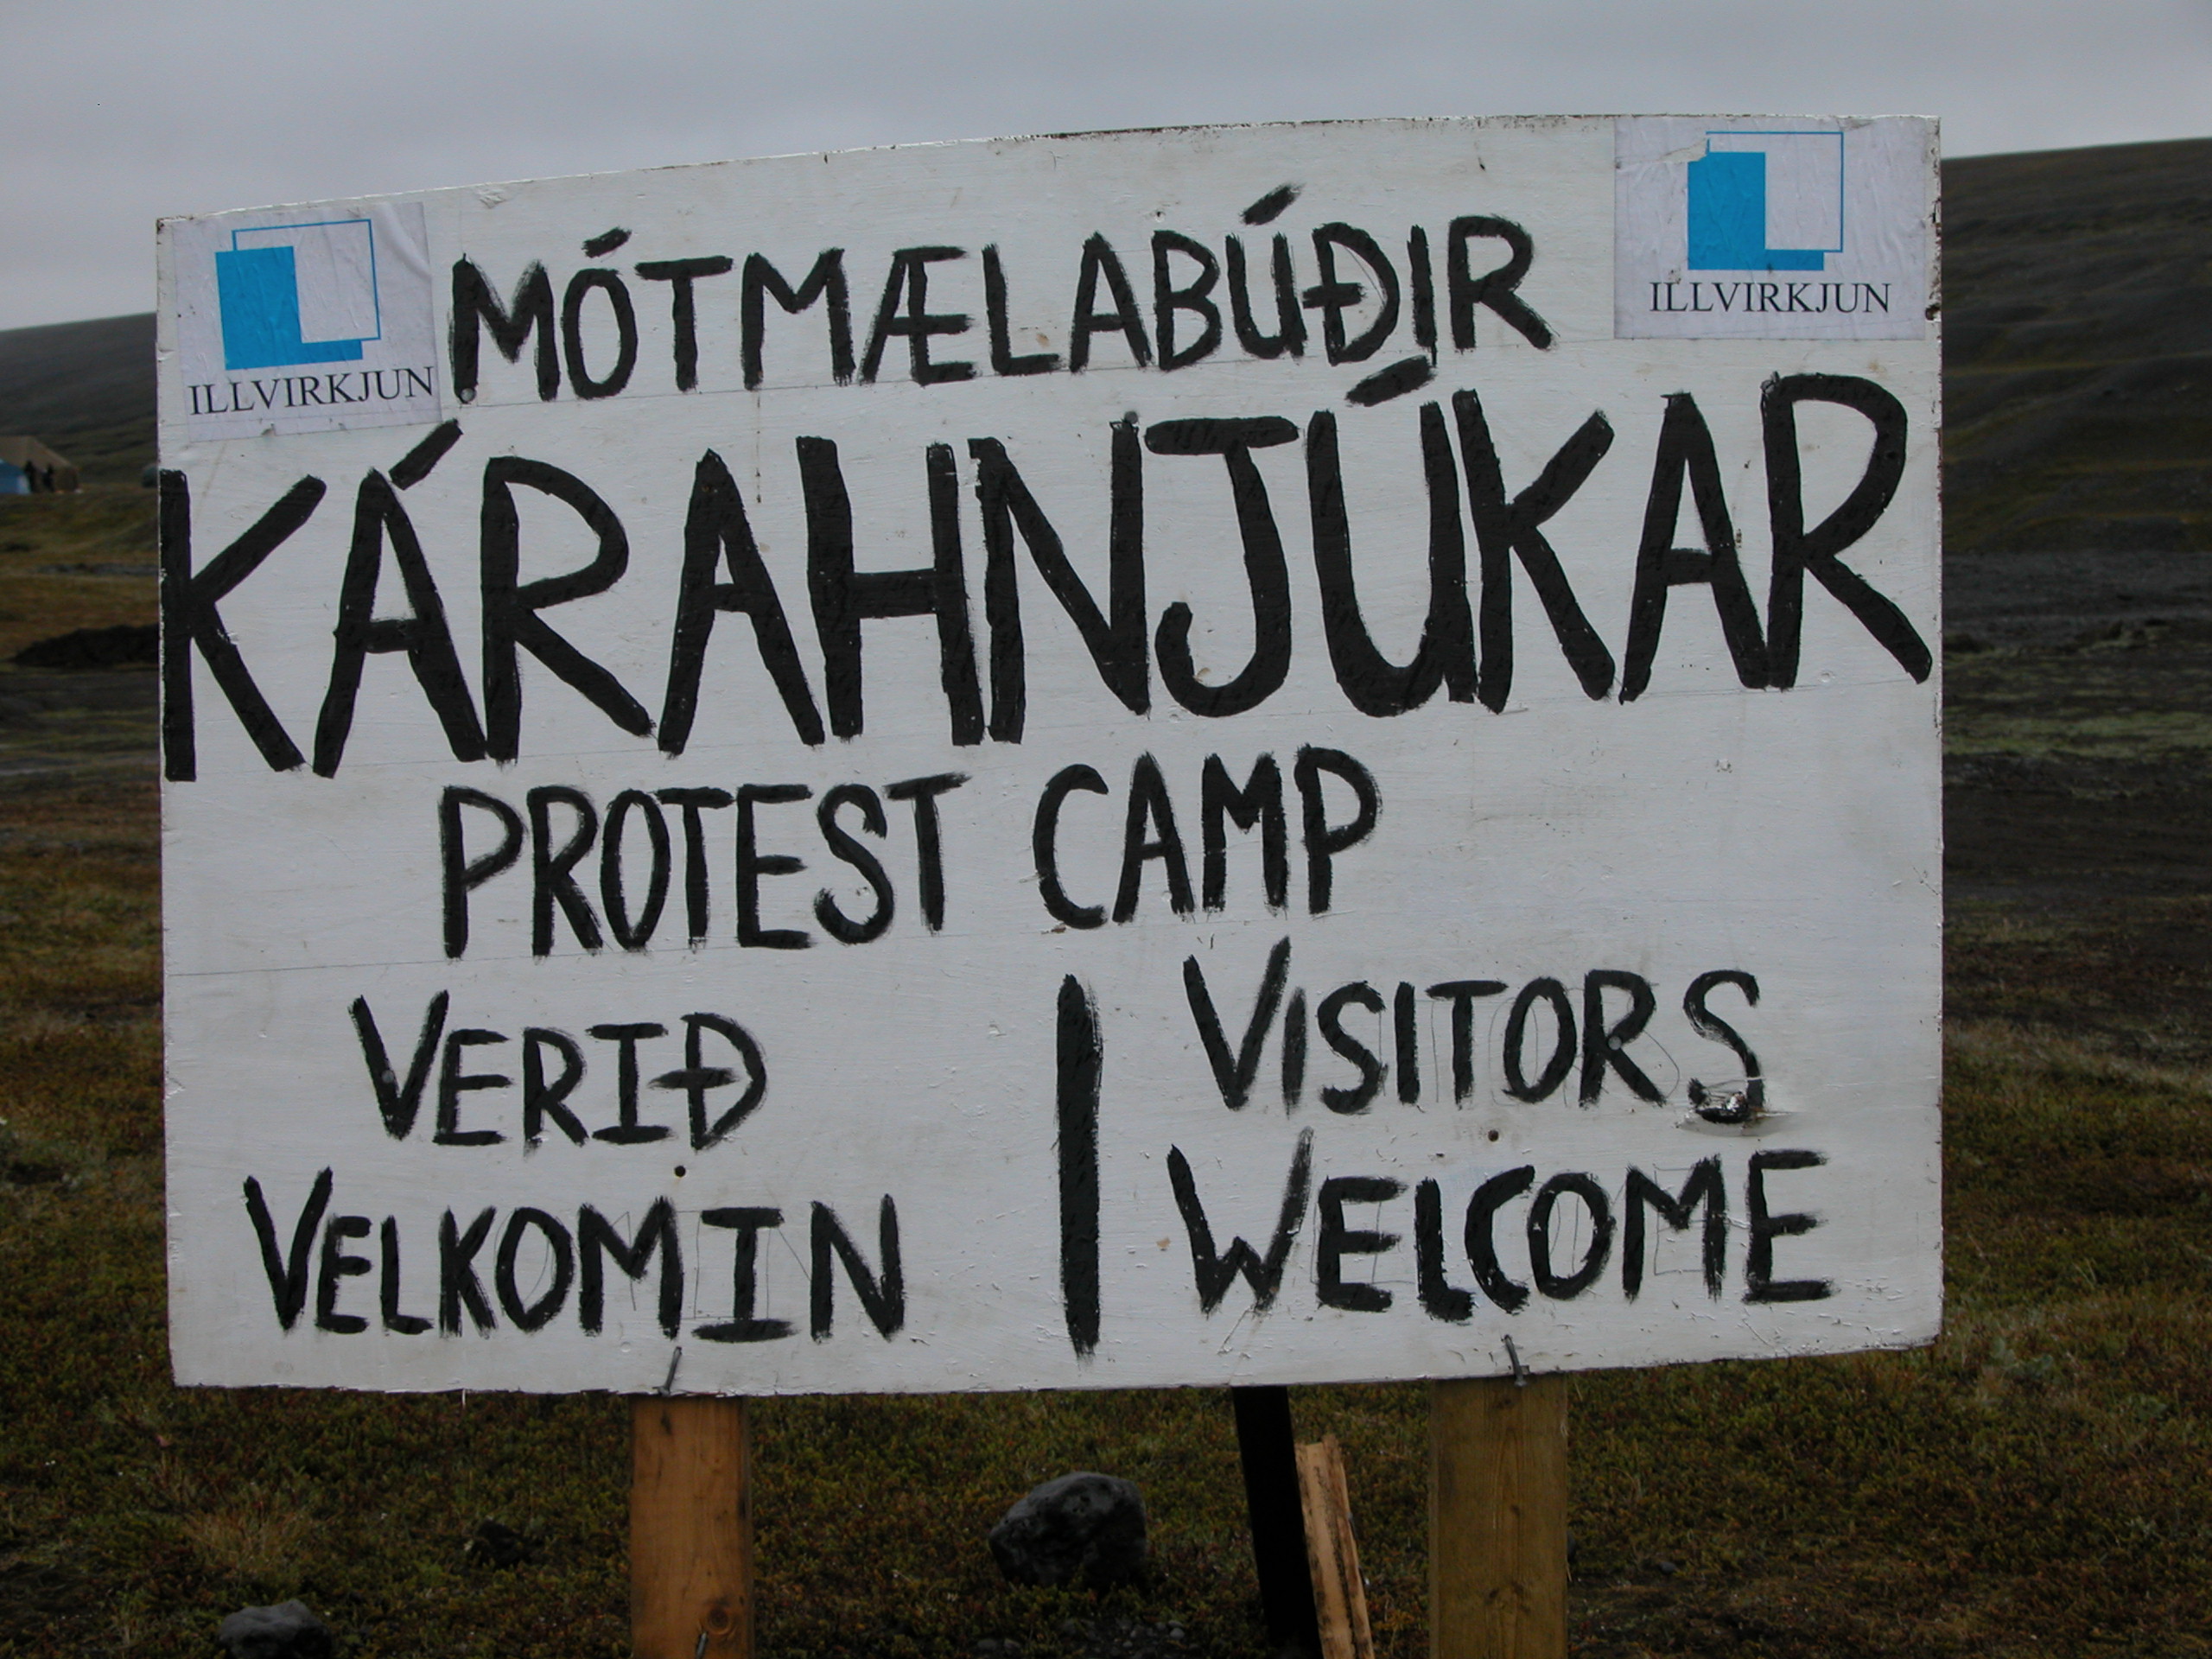 ILLVIRKJUN
MÓTMÆLABÚÐIR
ILLVIRKJUN
KÁRAHNJÚKAR
PROTEST CAMP
VERIÐ
VELKOMIN
VISITORS
WELCOME